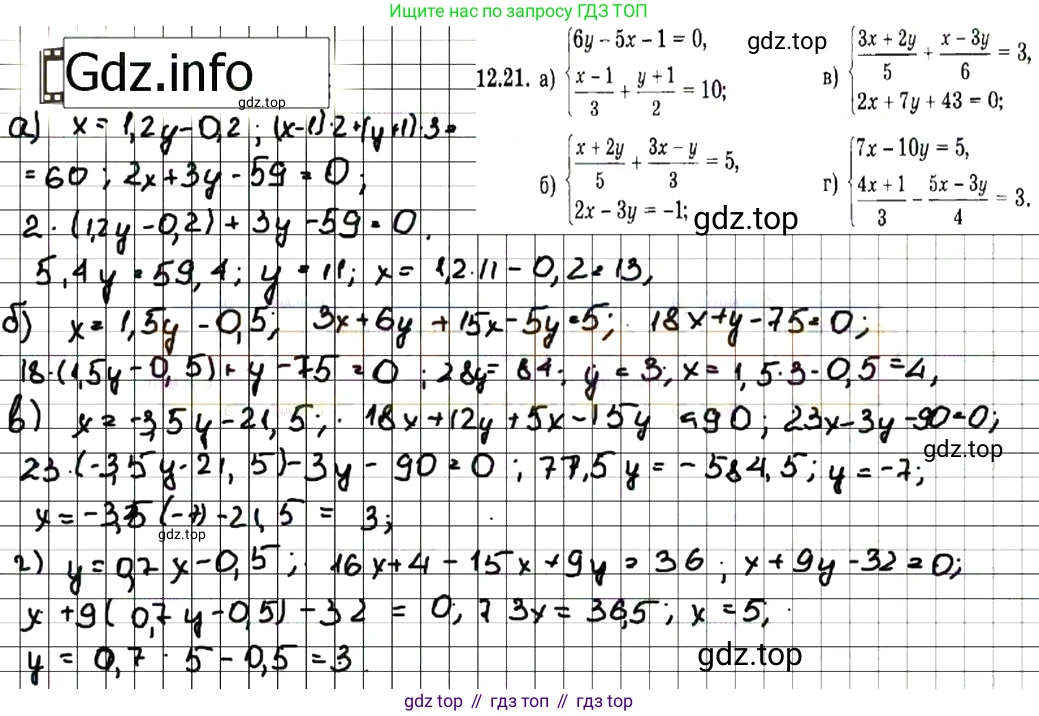 Ищите нас по запросу ГДЗ ТОП
Gdz.info
gdz.top
12.21. а) {6y − 5x − 1 = 0,
(x − 1)/3 + (y + 1)/2 = 10;
gdz.top
в) {(3x + 2y)/5 + (x − 3y)/6 = 3,
2x + 7y + 43 = 0;
б) {(x + 2y)/5 + (3x − y)/3 = 5,
2x − 3y = −1;
gdz.top
г) {7x − 10y = 5,
(4x + 1)/3 − (5x − 3y)/4 = 3.
а) x = 1,2y − 0,2 ; (x−1)·2+(y+1)·3=
= 60 ; 2x + 3y − 59 = 0 ;
2 · (1,2y − 0,2) + 3y − 59 = 0.
5,4y = 59,4 ; y = 11; x = 1,2·11 − 0,2 = 13,
б) x = 1,5y − 0,5; 3x + 6y + 15x − 5y = 5; 18x + y − 75 = 0;
18·(1,5y − 0,5) + y − 75 = 0 ; 28y = 84; y = 3; x = 1,5·3 − 0,5 = 4,
в) x = −3,5y − 21,5; 18x + 12y + 5x − 15y = 90; 23x − 3y − 90 = 0;
gdz.top
23·(−3,5y − 21,5) − 3y − 90 = 0 ; 77,5y = −584,5; y = −7;
x = −3,5(−7) − 21,5 = 3;
gdz.top
г) y = 0,7x − 0,5; 16x + 4 − 15x + 9y = 36 ; x + 9y − 32 = 0;
x + 9(0,7y − 0,5) − 32 = 0; 7 3x = 36,5; x = 5;
y = 0,7 · 5 − 0,5 = 3
gdz.top
gdz top // гдз топ // gdz top